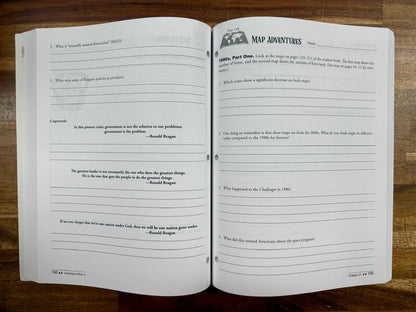 2. What is "mutually assured destruction" (MAD)?
3. What were some of Reagan's policies as president?
Copywork:
In this present crisis, government is not the solution to our problems;
government is the problem.
—Ronald Reagan
The greatest leader is not necessarily the one who does the greatest things.
He is the one that gets the people to do the greatest things.
—Ronald Reagan
If we ever forget that we're one nation under God, then we will be one nation gone under.
—Ronald Reagan
Map Adventures
Name
1980s, Part One. Look at the maps on pages 210–211 of the student book. The first map shows the
number of farms, and the second map shows the amount of farm land.
1. Which states show a significant decrease on both maps?
2. One thing to remember is that these maps are from the 2000s. What do you think might be different
today compared to the 1980s for farmers?
3. What happened to the Challenger in 1986?
4. What did this remind Americans about the space program?